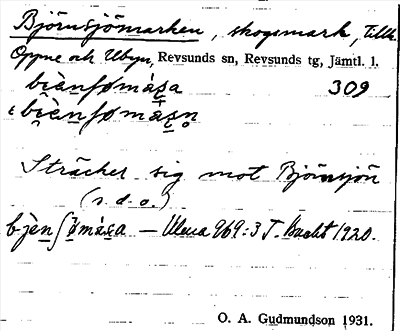 Björnsjömarken, skogsmark, tillh.
Oppne och Utbyn, Revsunds sn, Revsunds tg, Jämtl. l.
309
Sträcker sig mot Björnsjön
(s.d.o.)
— Ulma 969:3 T. Bucht 1920.
O. A. Gudmundson 1931.